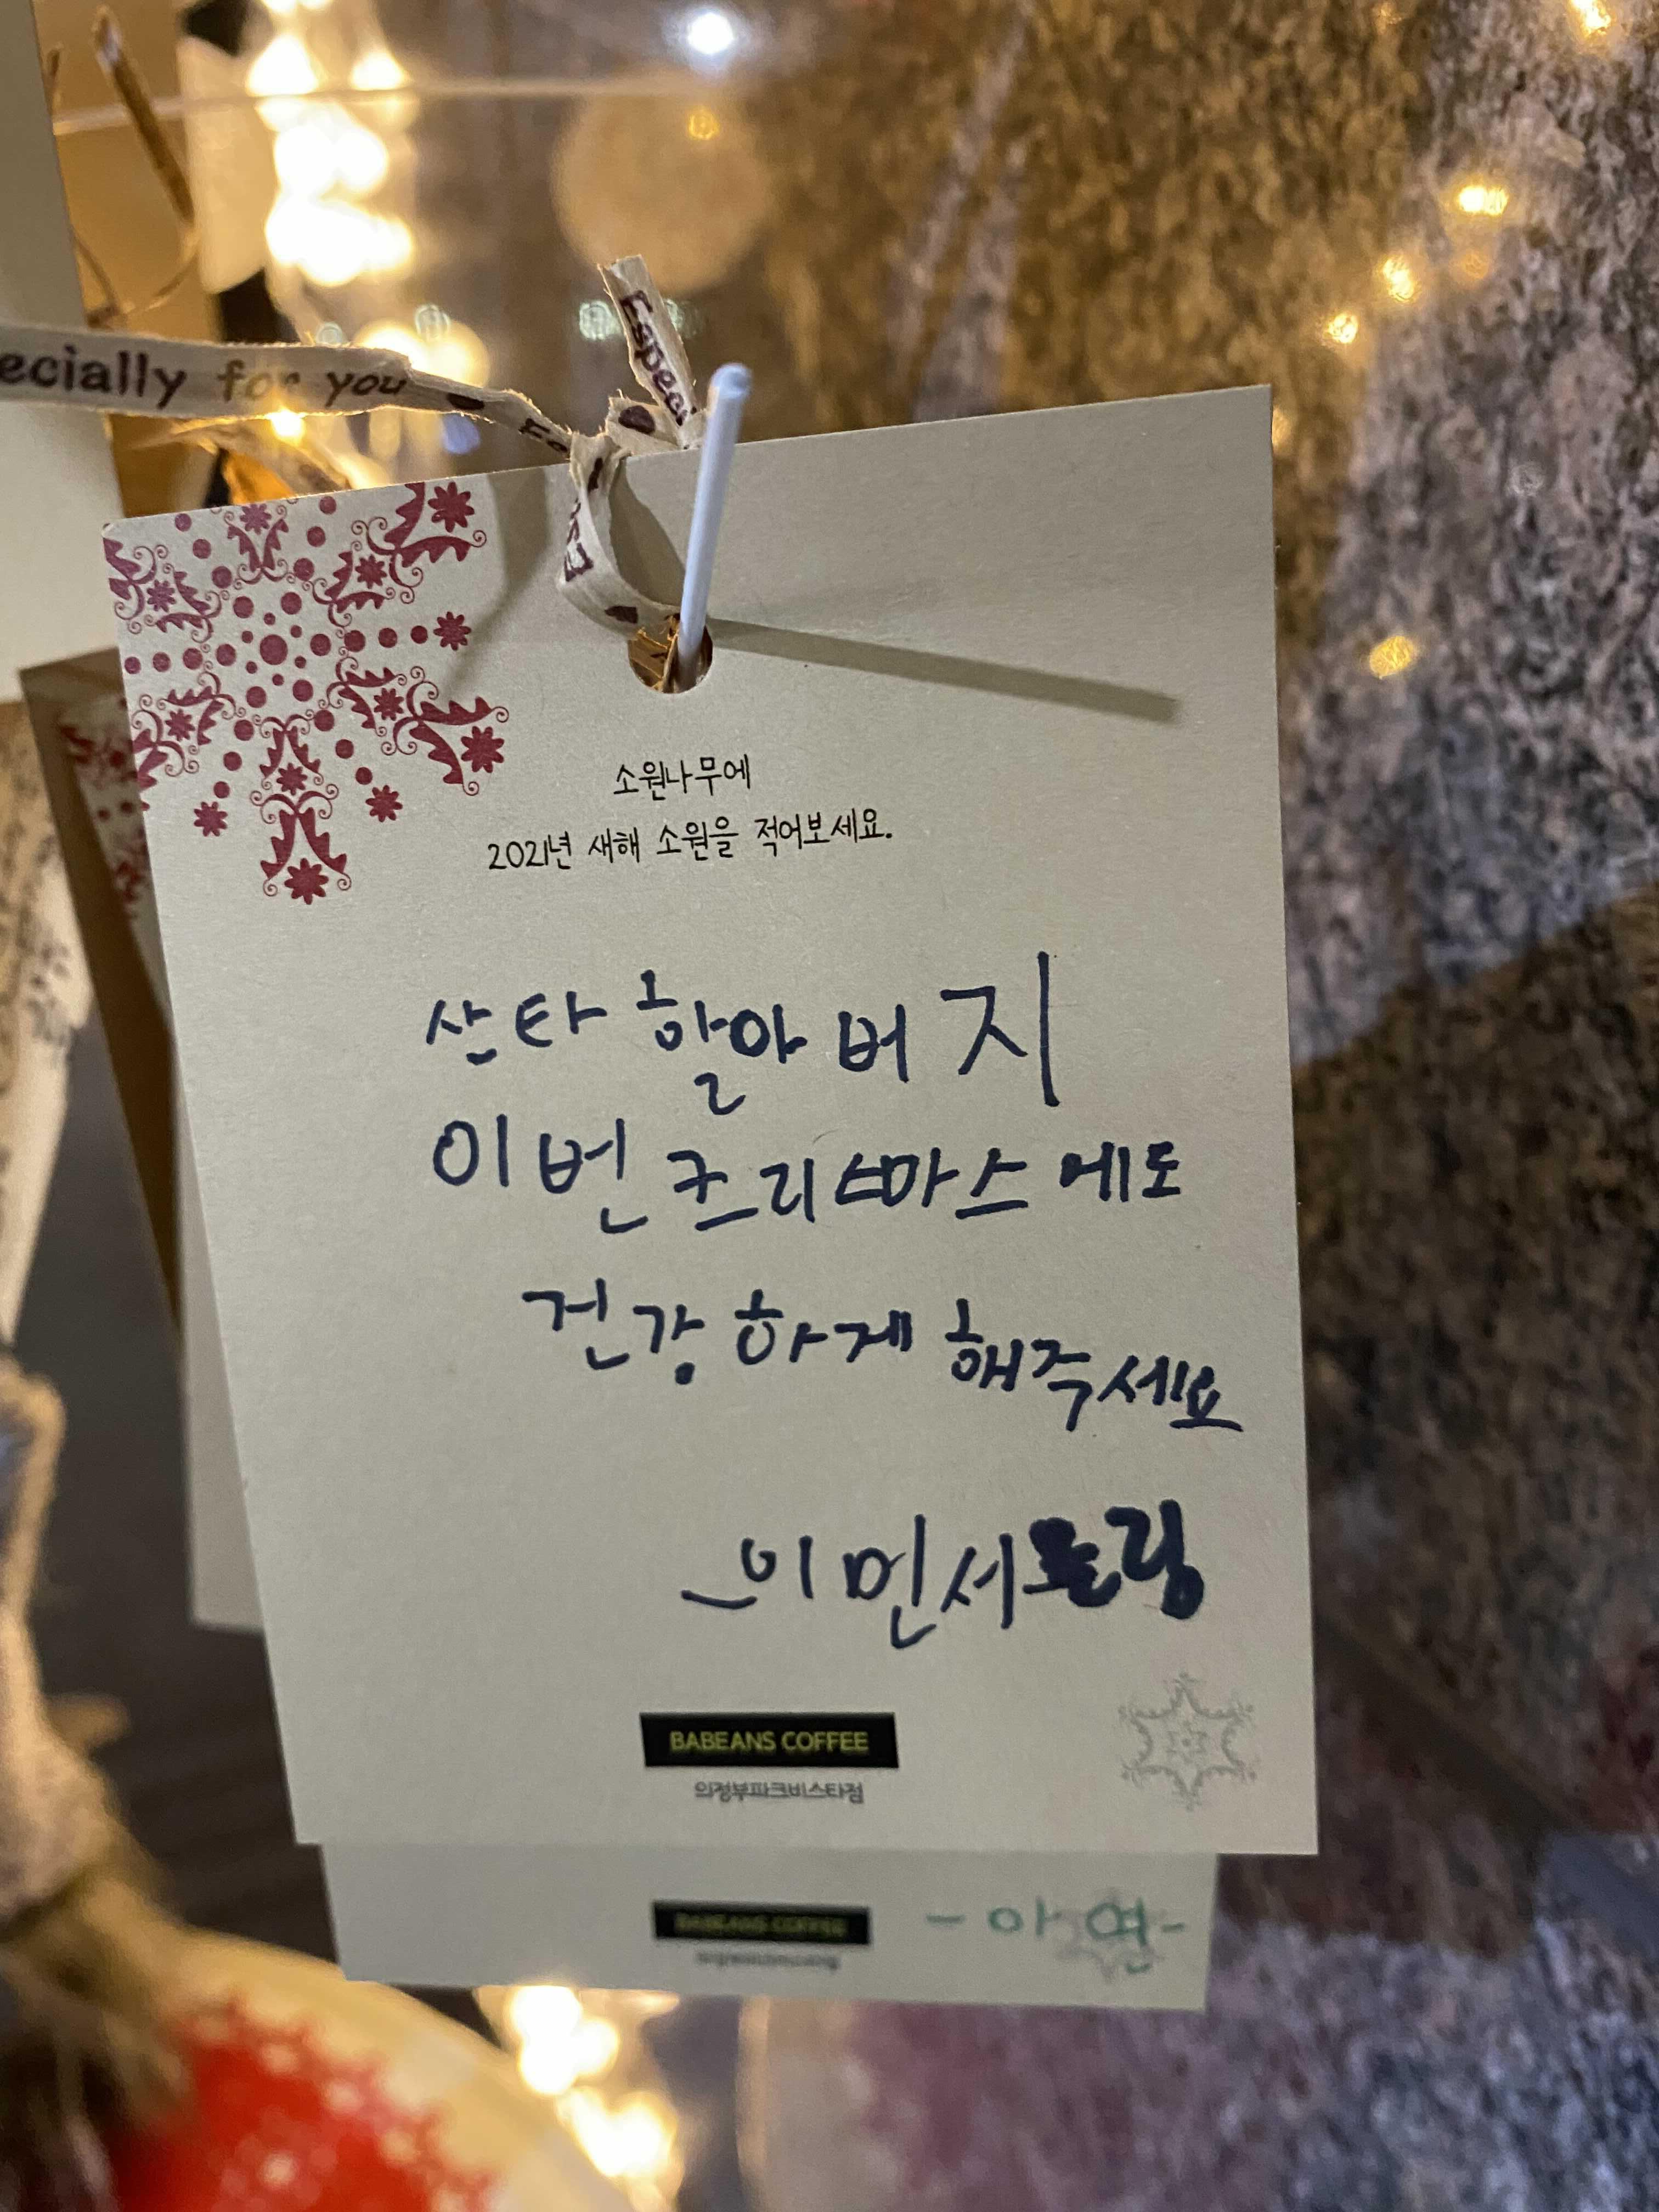 ecially for you
Espec
소원나무에
2021년 새해 소원을 적어보세요.
산타 할아버지
이번 크리스마스에도
건강하게 해주세요
이민서 올림
BABEANS COFFEE
의정부파크비스타점
BABEANS COFFEE
-아연-